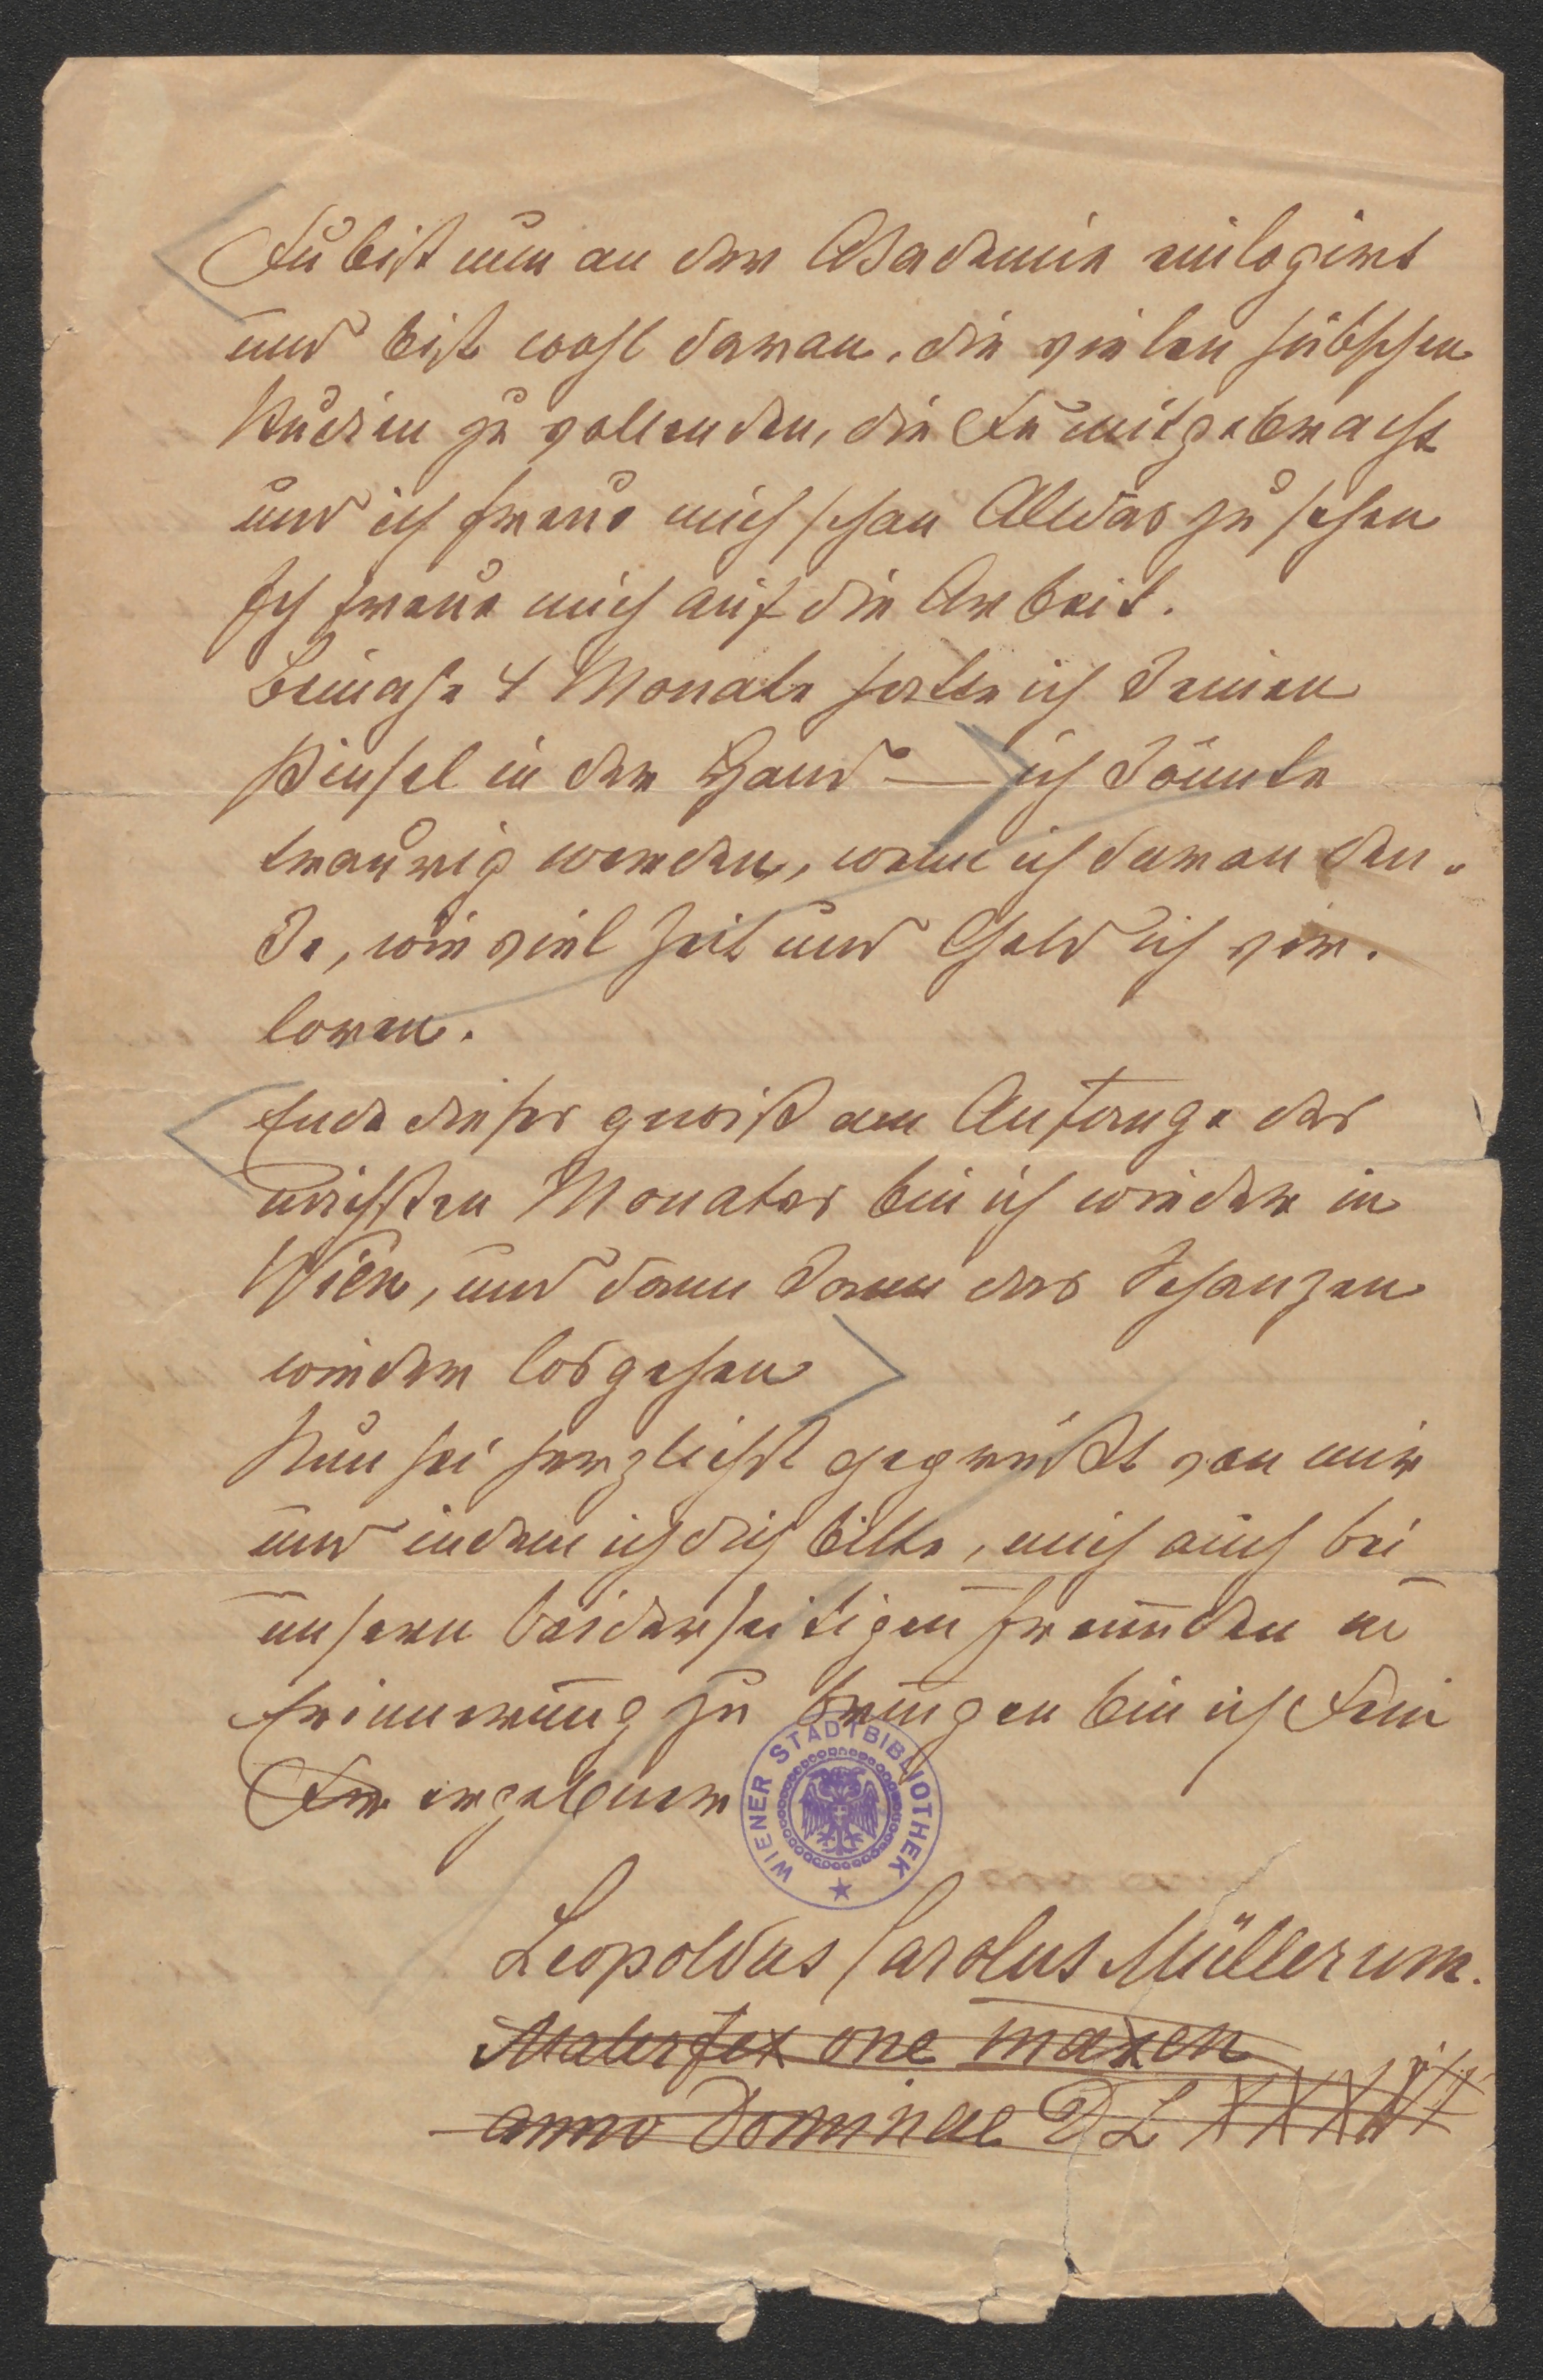 Du bist nun an der Akademie einlogirt
und bist wohl daran, die vielen hübschen
Studien zu vollenden, die Du mitgebracht
und ich freue mich schon Alldas zu sehen
Ich freue mich auf die Arbeit.
Beinahe 4 Monate hatte ich keinen
Pinsel in der Hand — ich könnte
traurig werden, wenn ich daran den-
ke, wie viel Zeit und Geld ich ver-
loren.
Ende dieses gewiß am Anfange des
nächsten Monates bin ich wieder in
Wien, und dann kann das Schanzen
wieder losgehen
Nun sei herzlichst gegrüßt von mir
und indem ich dich bitte, mich auch bei
unsern beiderseitigen Freunden in
Erinnerung zu bringen bin ich Dein
Dir ergebener
WIENER STADTBIBLIOTHEK
Leopoldus Carolus Müllerum.
Malerfex one maxen
anno Dominae DL